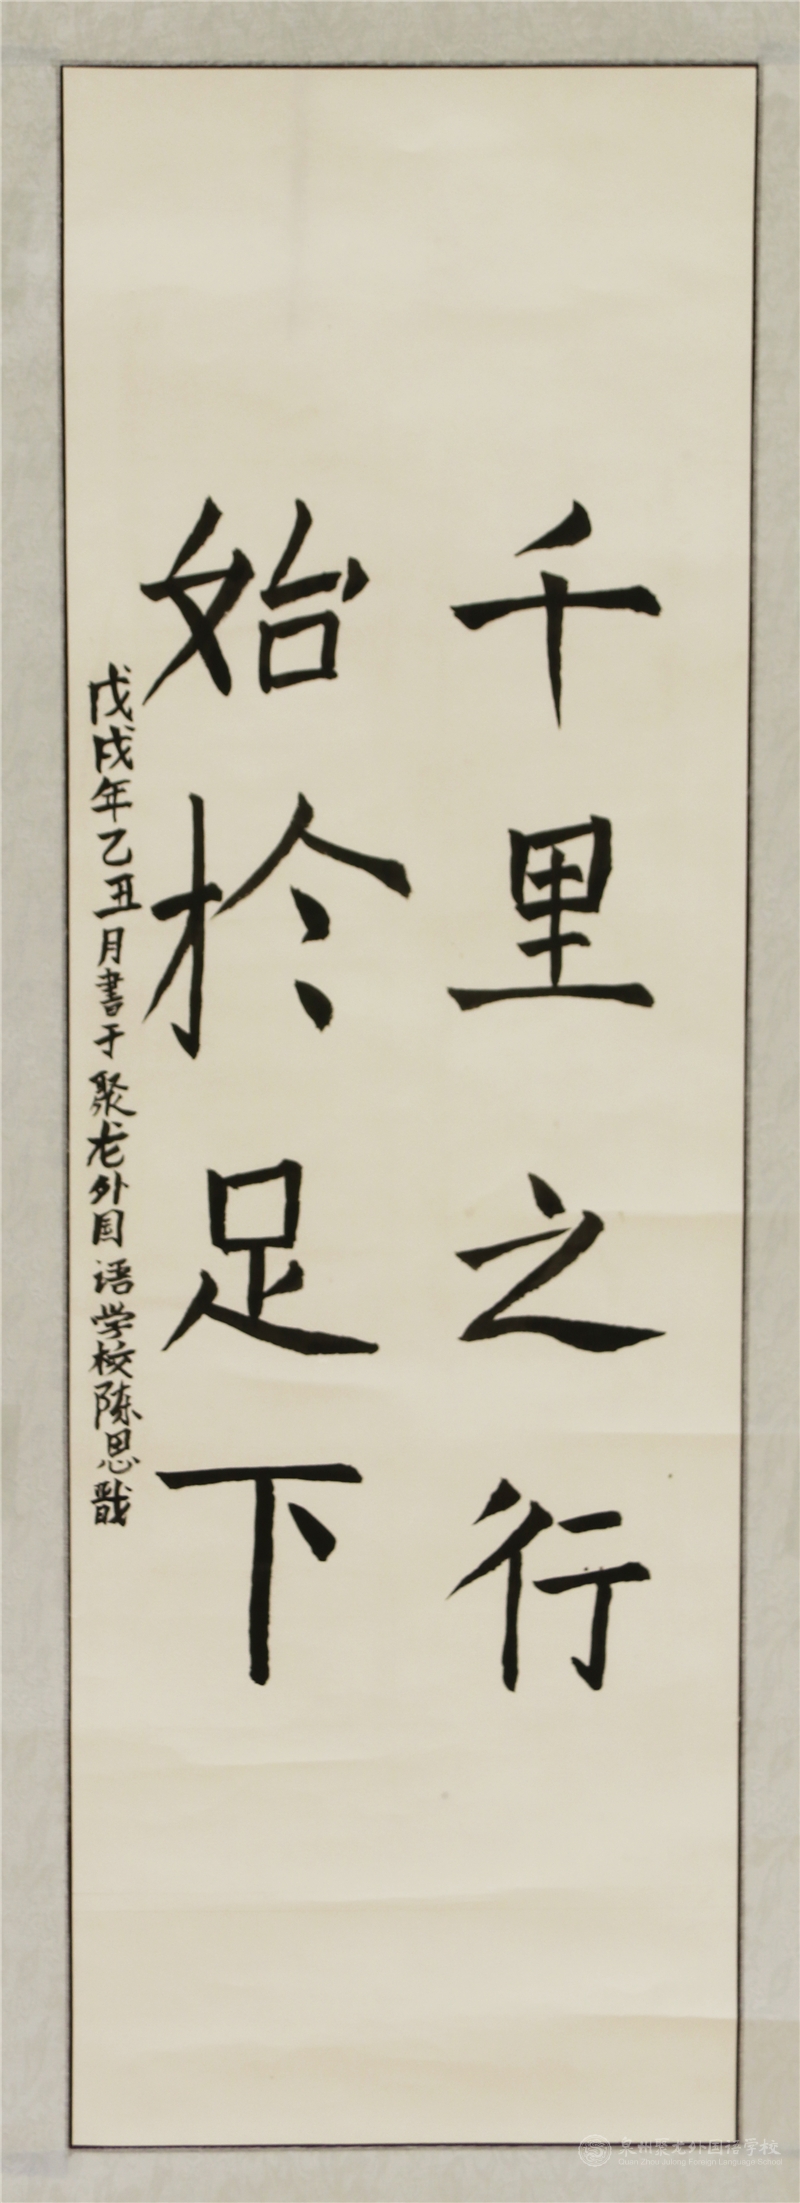 千里之行
始於足下
戊戌年乙丑月書于聚龙外国语学校陈思戬
泉州聚龙外国语学校
Quan Zhou Julong Foreign Language School